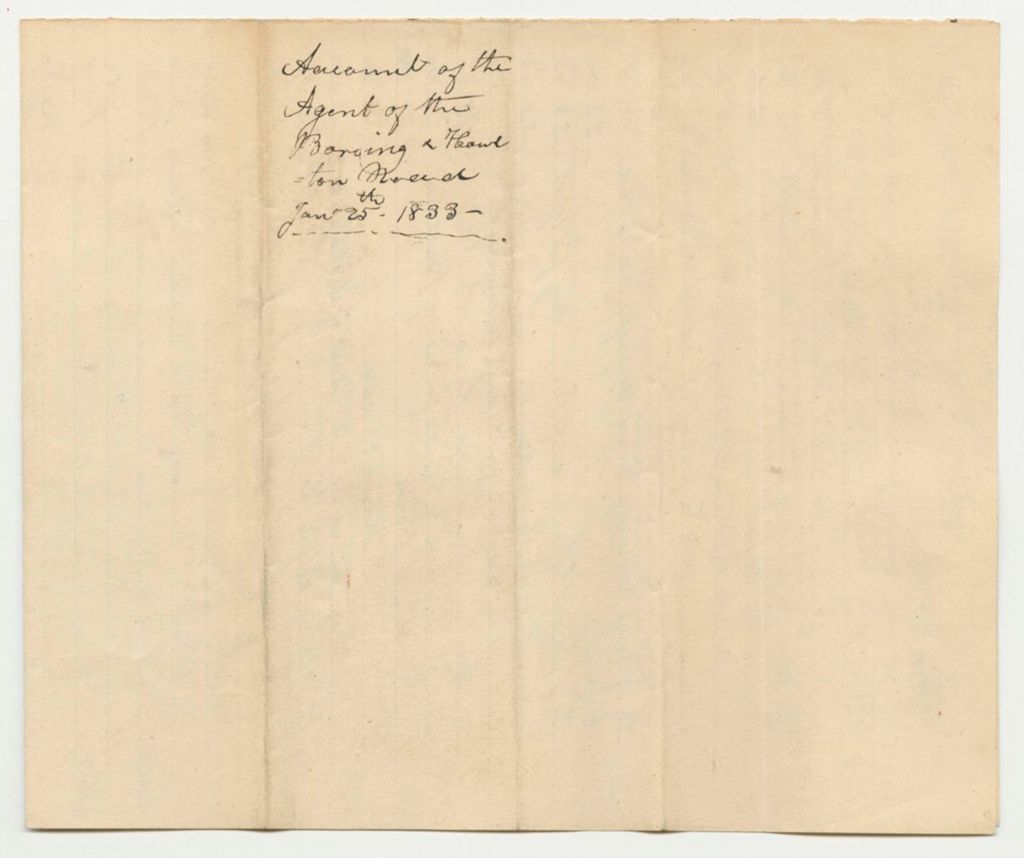 Account of the
Agent of the
Bareing & Houl
=ton Road
Jany 25th - 1833 -